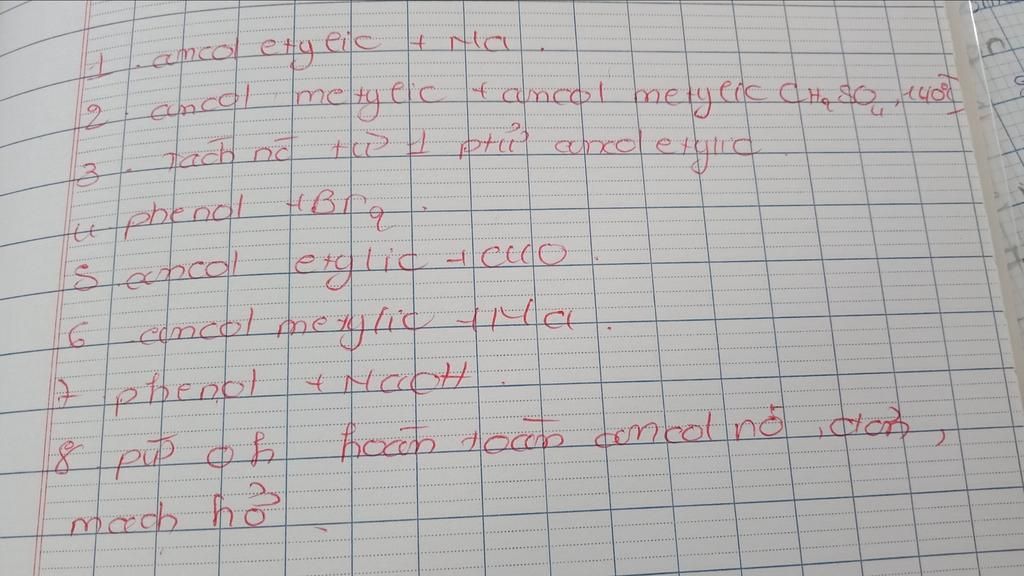 1. ancol etylic + Na.
2 ancol metylic + ancol metylic (H₂SO₄, 140°
3. Tách nc từ 1 ptử ancol etylic
4 phenol + Br₂.
5 ancol etylic + CuO.
6 ancol metylic + Na.
7 phenol + NaOH.
8 pứ hoàn toàn ancol no, đơn,
mạch hở.